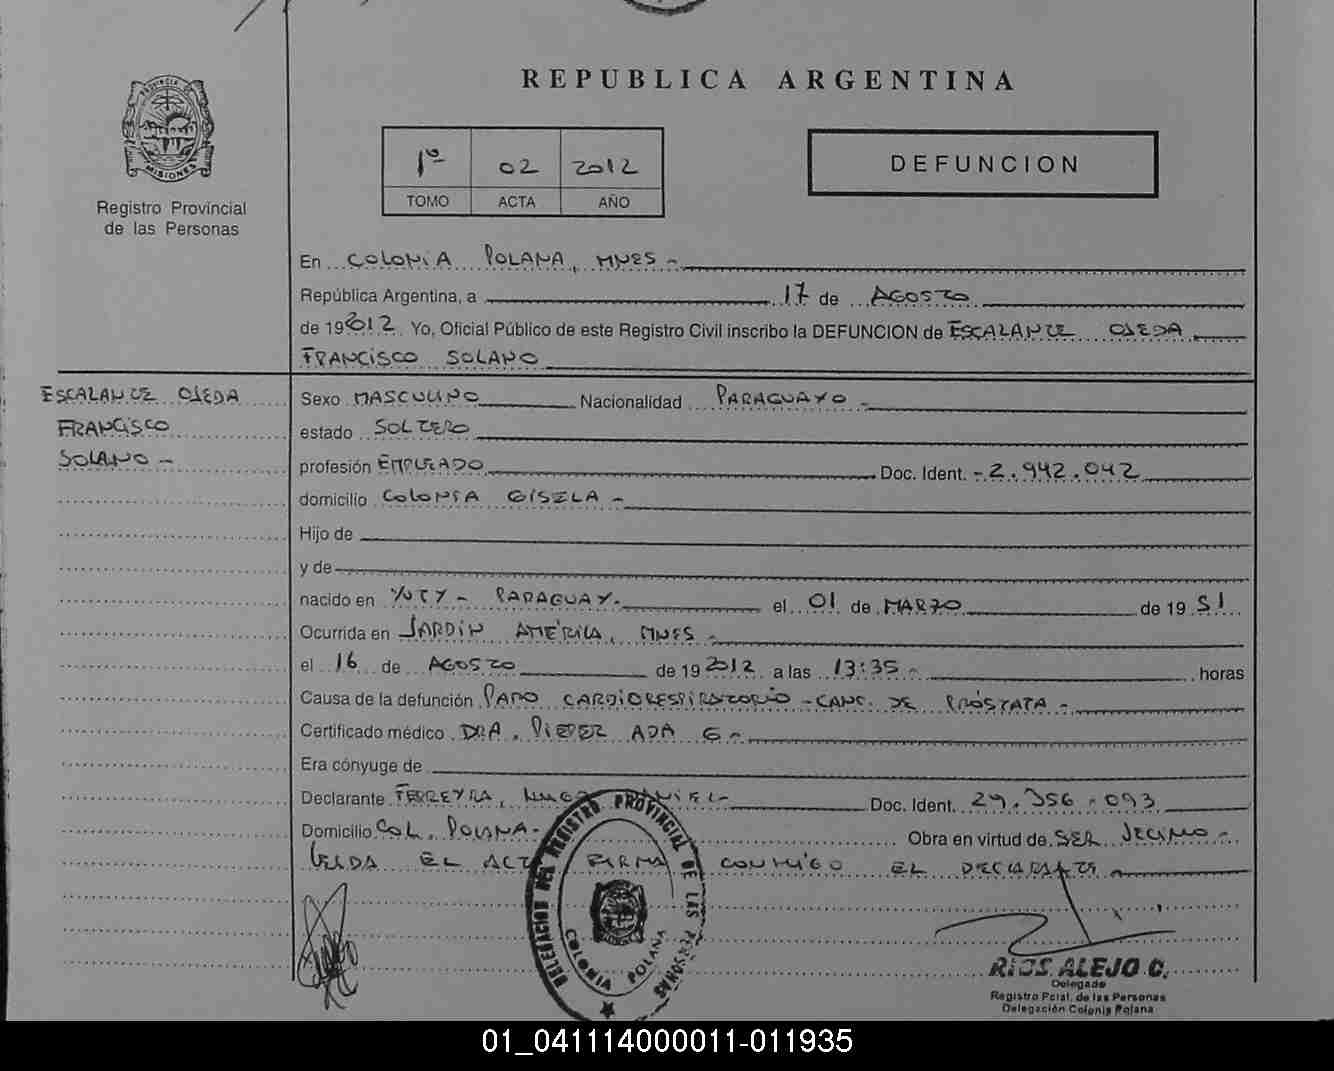 REPUBLICA ARGENTINA
PROVINCIA DE
MISIONES
Registro Provincial
de las Personas
1º 02 2012
TOMO ACTA AÑO
DEFUNCION
En COLONIA POLANA, MNES -
República Argentina, a 17 de AGOSTO
de 192012 Yo, Oficial Público de este Registro Civil inscribo la DEFUNCION de ESCALANTE OJEDA
FRANCISCO SOLANO
ESCALANTE OJEDA
FRANCISCO
SOLANO -
Sexo MASCULINO Nacionalidad PARAGUAYO -
estado SOLTERO
profesión EMPLEADO Doc. Ident. - 2.942.042
domicilio COLONIA GISELA -
Hijo de
y de
nacido en YUTY - PARAGUAY - el 01 de MARZO de 19 51
Ocurrida en JARDÍN AMÉRICA, MNES -
el 16 de AGOSTO de 19 2012 a las 13:35 - horas
Causa de la defunción PARO CARDIORESPIRATORIO - CANC. DE PRÓSTATA -
Certificado médico DRA. PIEPER ADA G -
Era cónyuge de
Declarante FERREYRA, HUGO DANIEL - Doc. Ident. 29.356.093
Domicilio COL. POLANA - Obra en virtud de SER VECINO -
LEIDA EL ACTA FIRMA CONMIGO EL DECLARANTE
DELEGACION DEL REGISTRO PROVINCIAL DE LAS PERSONAS
COLONIA POLANA
RIOS ALEJO C.
Delegado
Registro Pcial. de las Personas
Delegación Colonia Polana
01_041114000011-011935